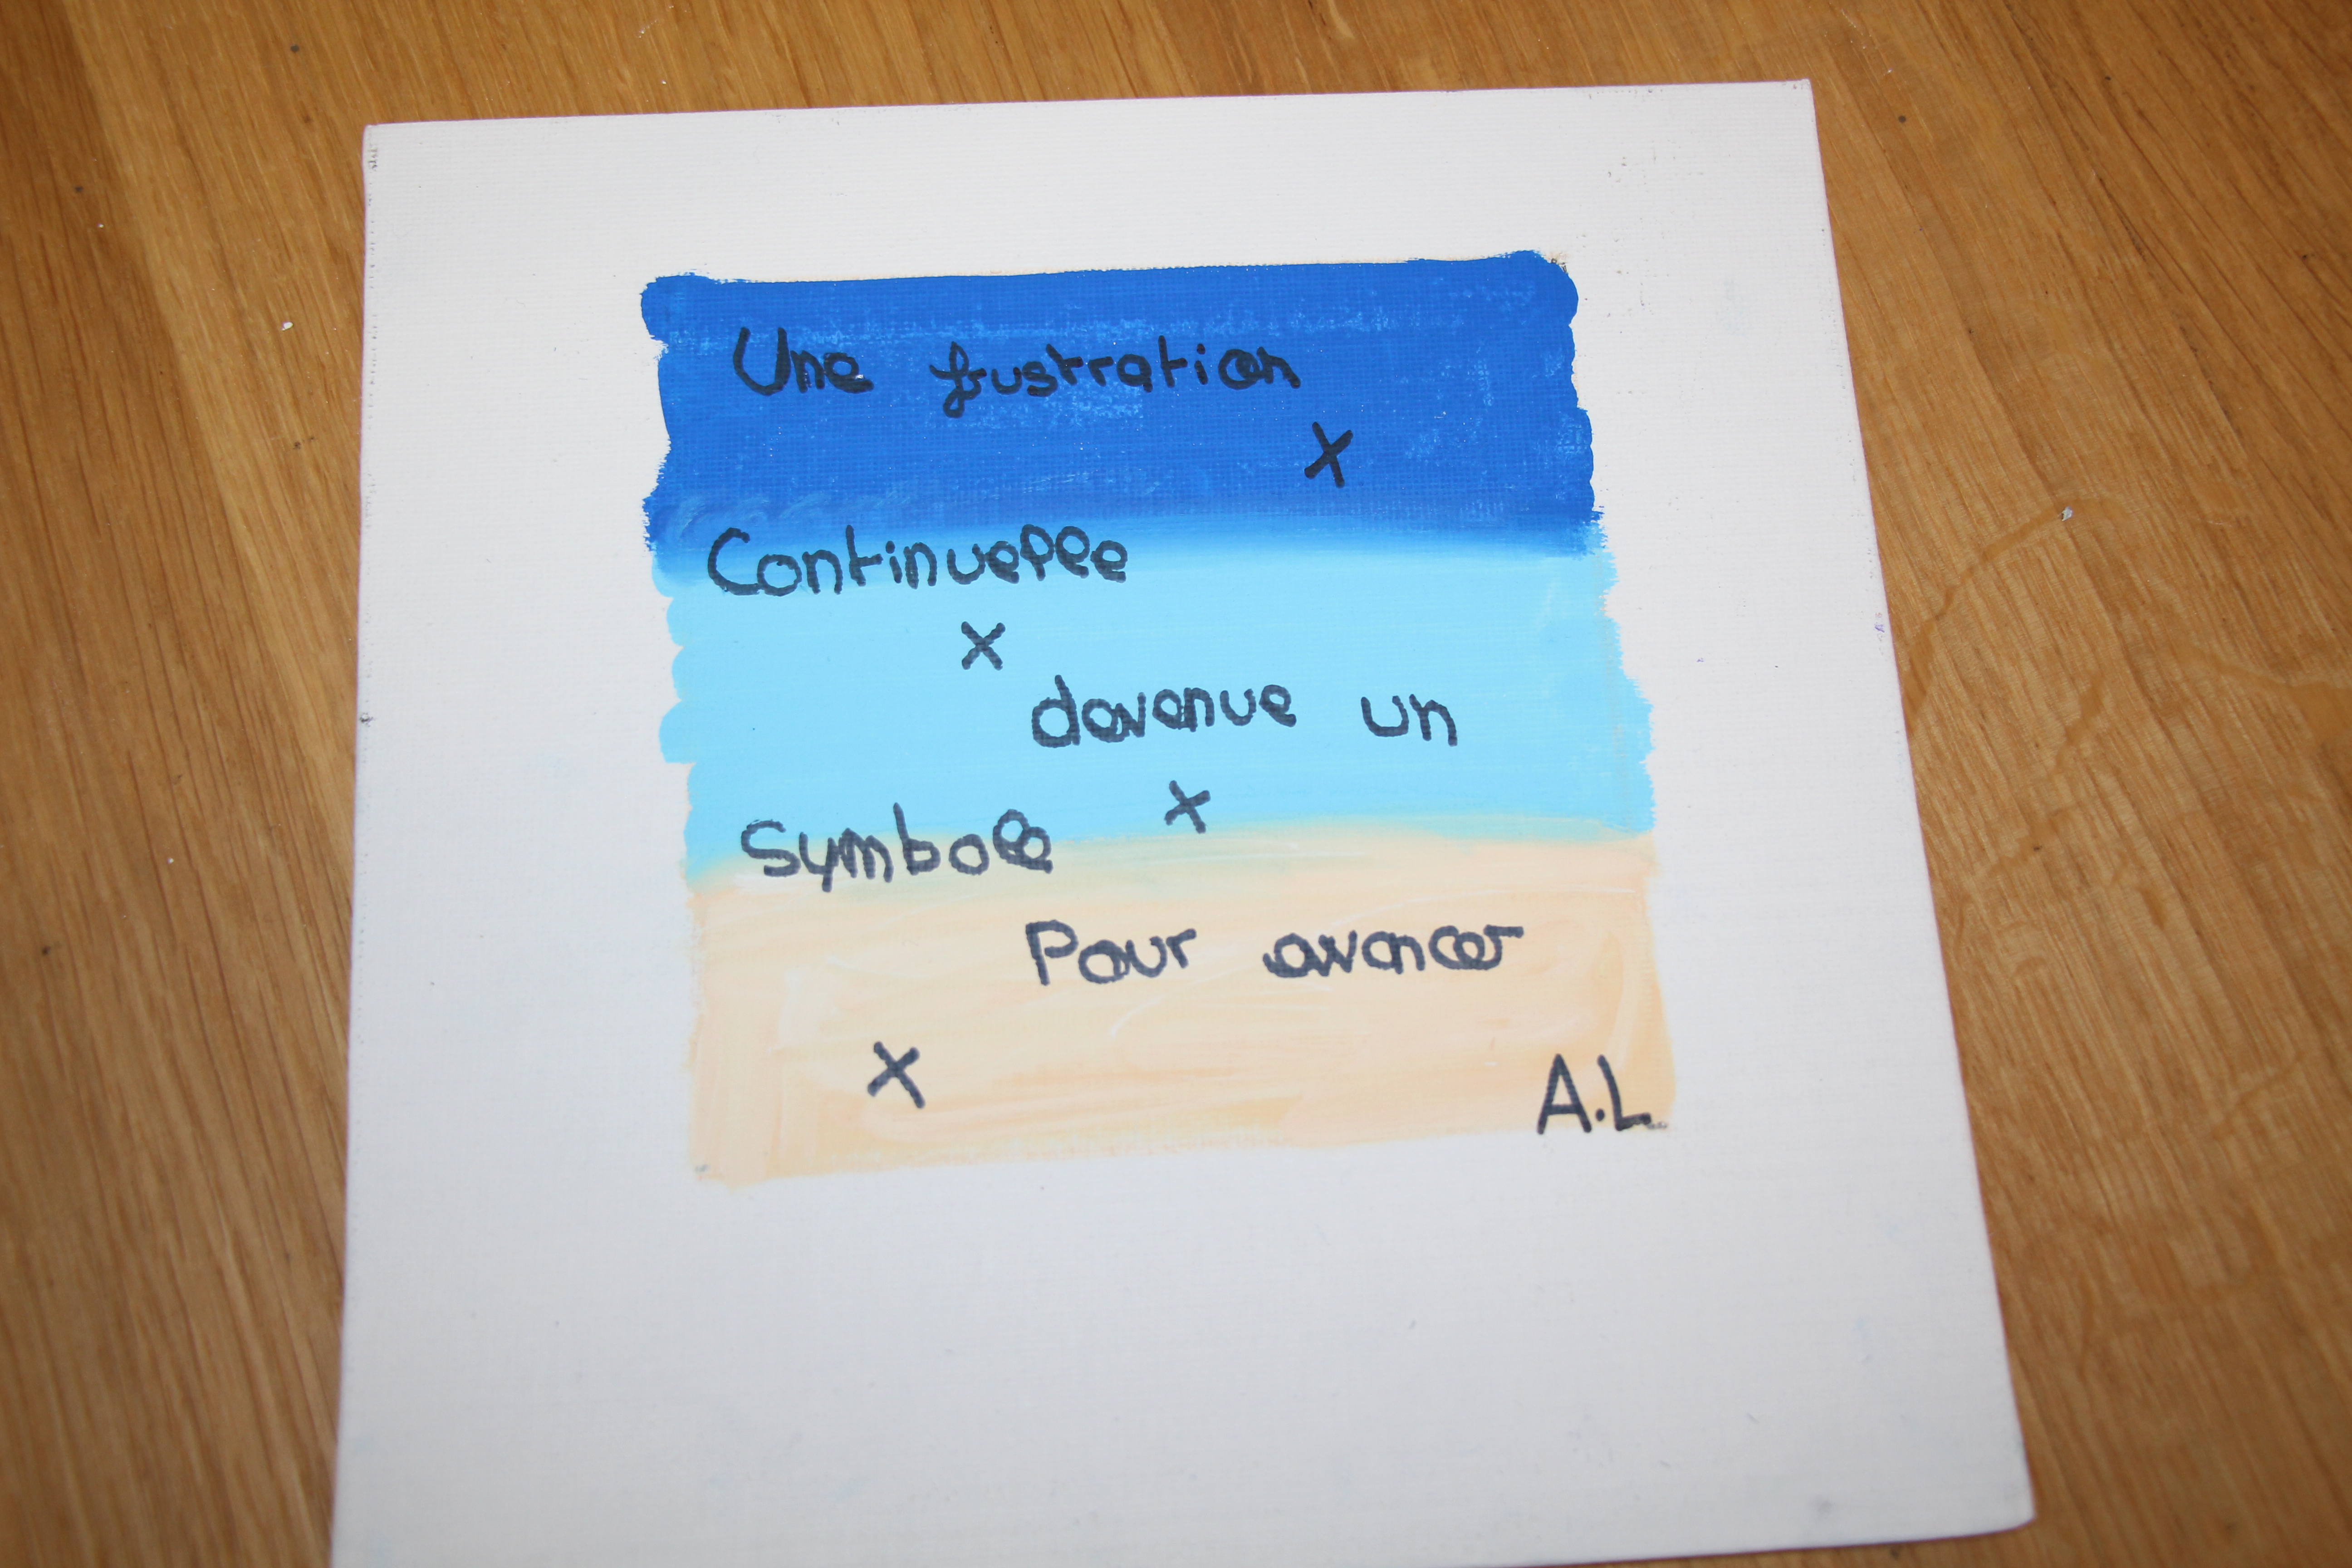 Une frustration
x
Continuelle
x
devenue un
x
Symbole
Pour avancer
x
A.L